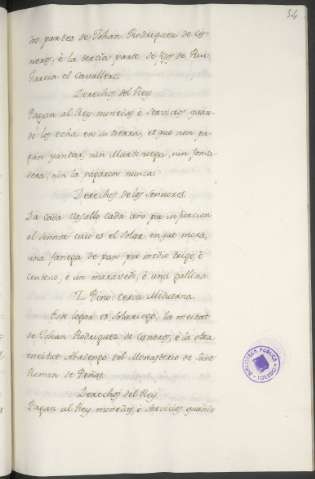 54
dos partes de Johan Rodriguez de Cis-
neros, è la tercia parte de fijos de Rui
Garcia el Cavallero.
Derechos del Rey
Pagan al Rey moneda è servicio quan-
do los echa en su tierra, et que non pa-
gan yantar, nin Martiniega, nin fonsa-
dera, nin la pagaron nunca.
Derechos de los Sennores.
Da cada Vasallo cada año por infurcion
al señor cuio es el solar en que mora,
una fanega de pan por medio trigo, è
centeno, è un maravedi, è una gallina.
El Pino cerca Miduerna.
Este logar es Solariego, la meitat
de Johan Rodriguez de Cisneros, è la otra
meitat Abadengo del Monasterio de Sant
Roman de Peñas.
Derechos del Rey
Pagan al Rey moneda, è servicios quando
BIBLIOTECA PUBLICA
TOLEDO